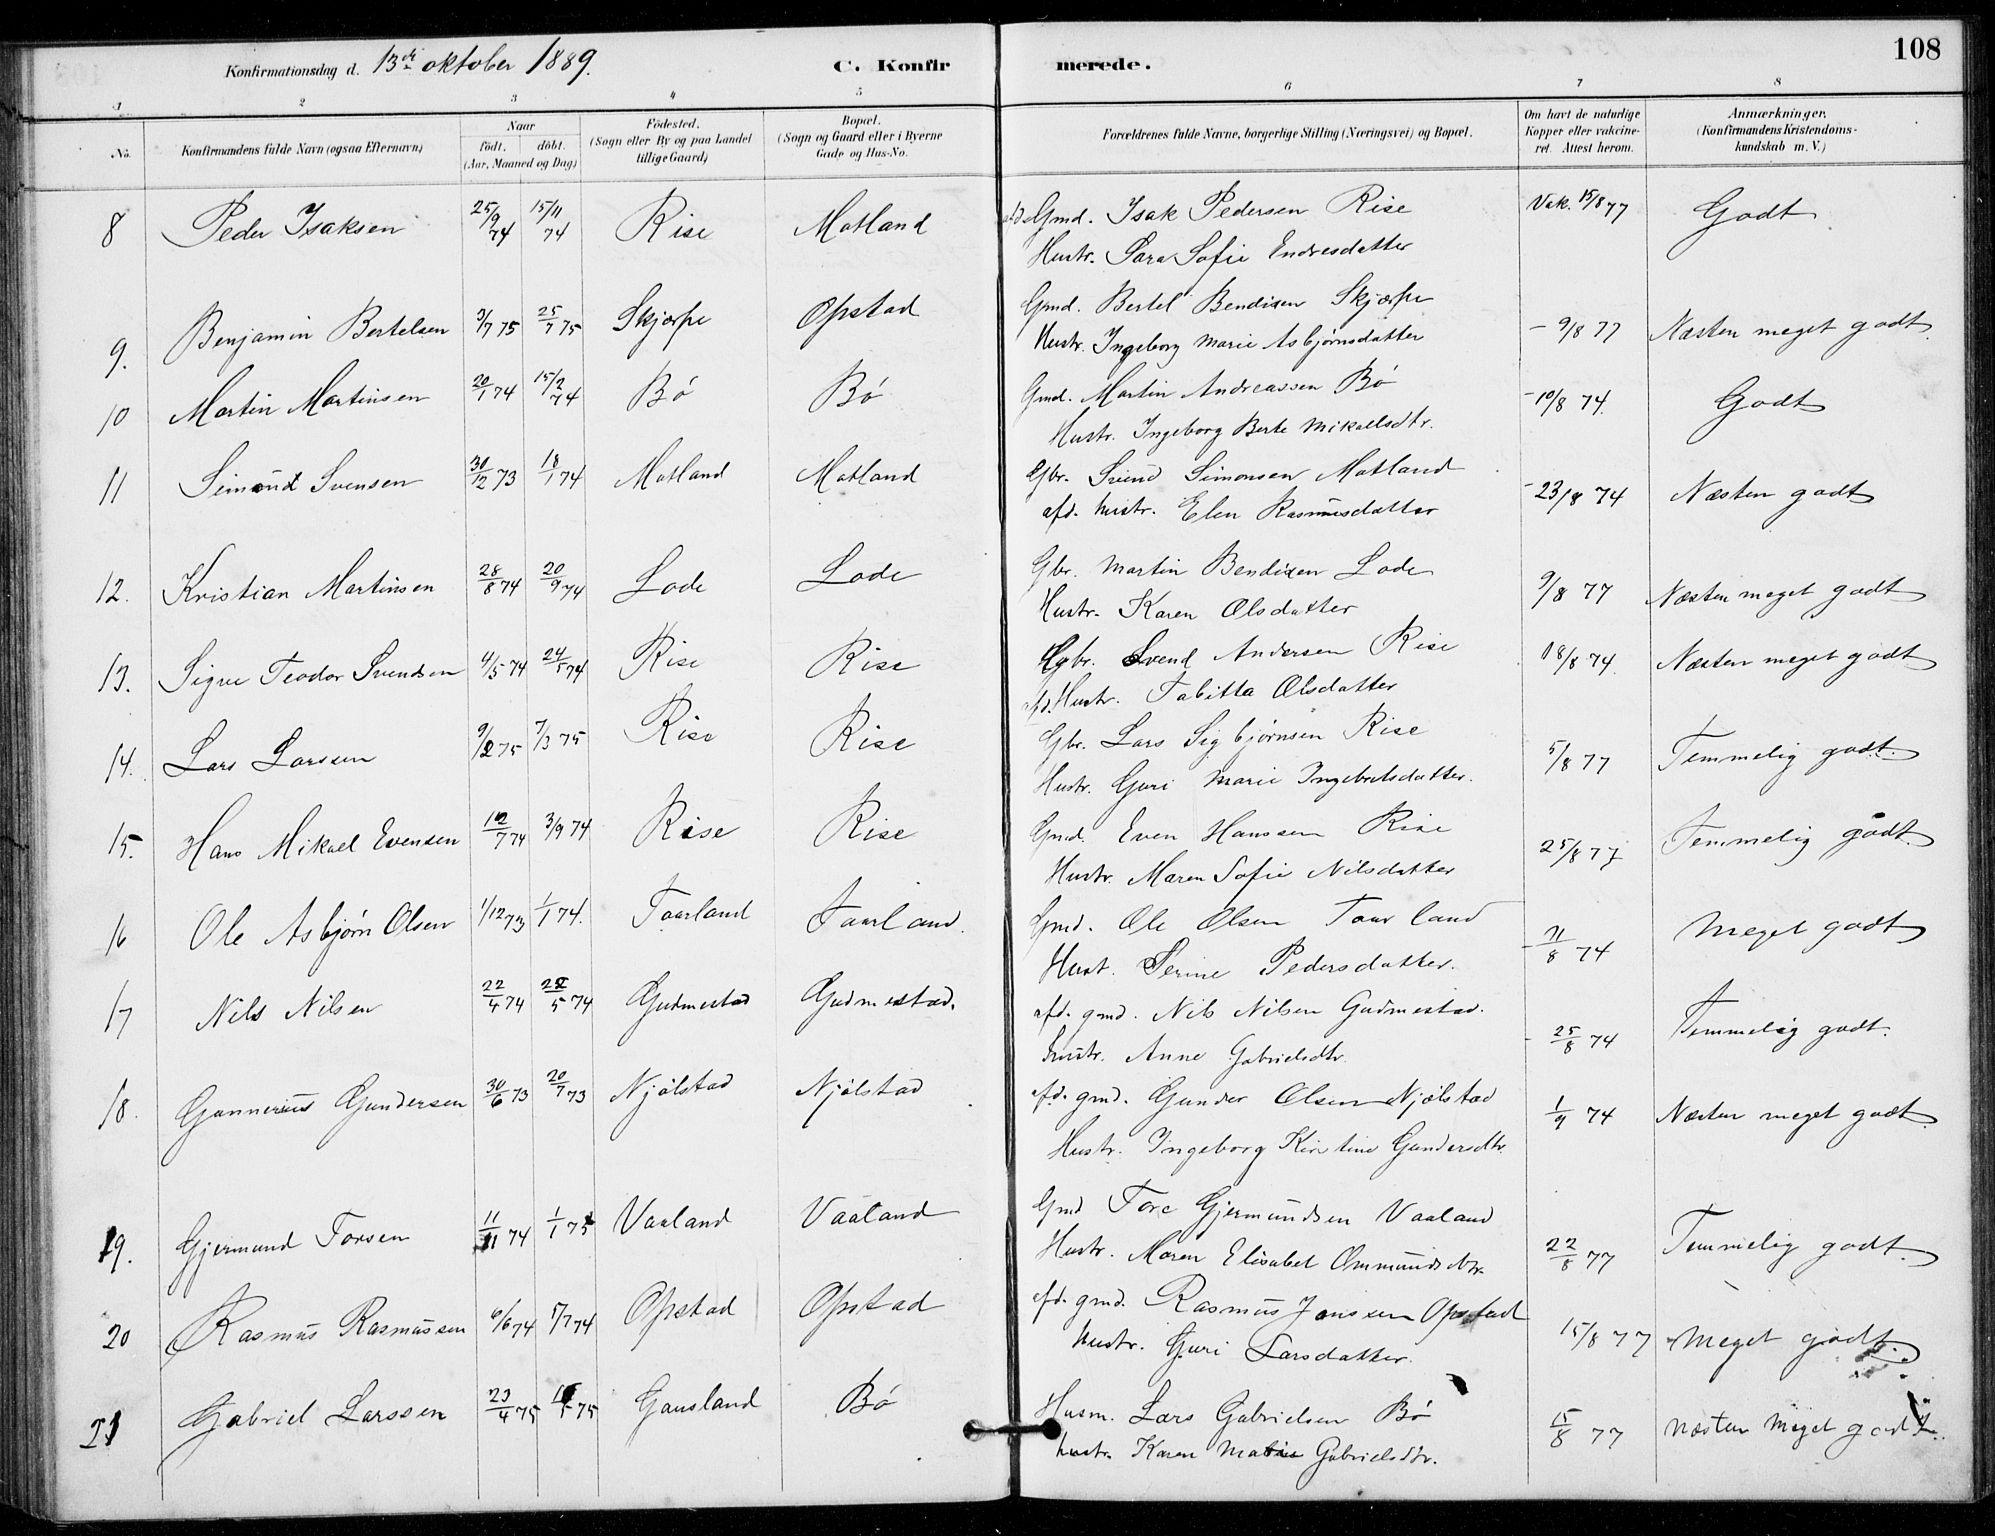 108
Konfirmationsdag d. 13de oktober 1889.
C. Konfir
merede.
1 2 3 4 5 6 7 8
No.
Konfirmandens fulde Navn (ogsaa Efternavn)
Naar
født. døbt.
(Aar, Maaned og Dag)
Födested.
(Sogn eller By og paa Landet
tillige Gaard)
Bopæl.
(Sogn og Gaard eller i Byerne
Gade og Hus-No.
Forældrenes fulde Navne, borgerlige Stilling (Næringsvei) og Bopæl.
Om havt de naturlige
Kopper eller vakcine-
ret. Attest herom.
Anmærkninger.
(Konfirmandens Kristendoms-
kundskab m. V.)
8 Peder Isaksen 25/9 74 15/11 74 Rise Motland afd. Gmd. Isak Pedersen Rise Vak. 15/8 77 Godt
Hustr. Sara Sofie Endresdatter
9. Benjamin Bertelsen 3/7 75 25/7 75 Skjærpe Opstad Gmd. Bertel Bendixen Skjærpe - 9/8 77 Næsten meget godt
Hustr. Ingeborg Marie Asbjørnsdatter
10 Martin Martinsen 20/1 74 15/2 74 Bø Bø Gmd. Martin Andreassen Bø - 10/8 74. Godt
Hustr. Ingeborg Berte Mikaelsdtr.
11 Simond Svensen 30/12 73 18/1 74 Motland Motland Gbr. Svend Simonsen Motland - 23/8 74 Næsten godt
afd. hustr. Elen Rasmusdatter
12. Kristian Martinsen 28/8 74 20/9 74 Lode Lode Gbr. Martin Bendixen Lode 9/8 77 Næsten meget godt
Hustr. Karen Olsdatter
13. Sigve Teodor Svendsen 4/5 74 24/5 74 Rise Rise Gbr. Svend Andersen Rise 18/8 74. Næsten meget godt
afd. Hustr. Tabitta Olsdatter
14. Lars Larssen 9/2 75 7/3 75 Rise Rise Gbr. Lars Sigbjørnsen Rise 5/8 77 Temmelig godt.
Hustr. Guri Marie Ingebretsdatter.
15. Hans Mikael Evensen 12/7 74 3/9 74 Rise Rise Gmd. Even Hanssen Rise 25/8 77 Temmelig godt.
Hustr. Maren Sofie Nilsdatter
16 Ole Asbjørn Olsen 1/12 73 1/1 74. Taarland Taarland. Gmd. Ole Olsen Taarland - 11/8 74 Meget godt
Hust. Serine Pedersdatter.
17 Nils Nilsen 22/4 74 22/5 74 Gudmestad Gudmestad. afd. gmd. Nils Nilsen Gudmestad. - 25/8 74 Temmelig godt.
hustr. Anne Gabrielsdtr.
18. Gunnerius Gundersen 30/6 73 20/7 73 Njølstad Njølstad afd. gmd. Gunder Olsen Njølstad 1/9 74 Næsten meget godt
Hustr. Ingeborg Kirstine Gundersdtr.
19. Gjermund Torsen 11/11 74 1/1 75 Vaaland Vaaland Gmd Tore Gjermundsen Vaaland 22/8 77 Temmelig godt.
Hustr. Maren Elisabet Ommundsdtr.
20 Rasmus Rasmussen 6/6 74 5/7 74 Opstad Opstad afd. gmd. Rasmus Jonssen Opstad 15/8 77 Meget godt.
hustr. Guri Larsdatter.
21 Gabriel Larssen 23/4 75 75 Gausland Bø Husm. Lars Gabrielsen Bø 15/8 77 næsten meget godt.
hustr. Karen Gabrielsdtr.